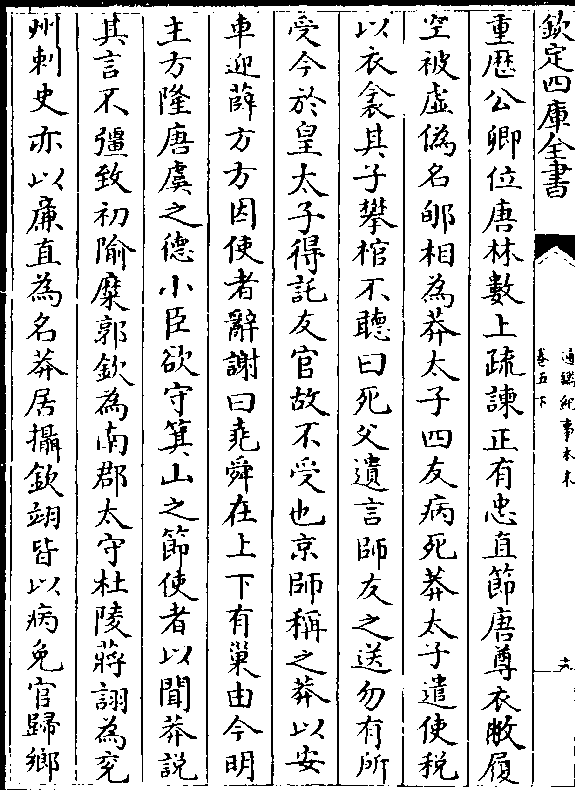 欽定四庫全書
通鑑紀事本末
卷五下
六
重歴公卿位唐林數上疏諫正有忠直節唐尊衣敝履
空被虛僞名郇相為莽太子四友病死莽太子遣使稅
以衣衾其子攀棺不聽曰死父遺言師友之送勿有所
受今於皇太子得託友官故不受也京師稱之莽以安
車迎薛方方因使者辭謝曰堯舜在上下有巢由今明
主方隆唐虞之德小臣欲守箕山之節使者以聞莽說
其言不彊致初隃糜郭欽為南郡太守杜陵蔣詡為兖
州刺史亦以廉直為名莽居攝欽翊皆以病免官歸鄉